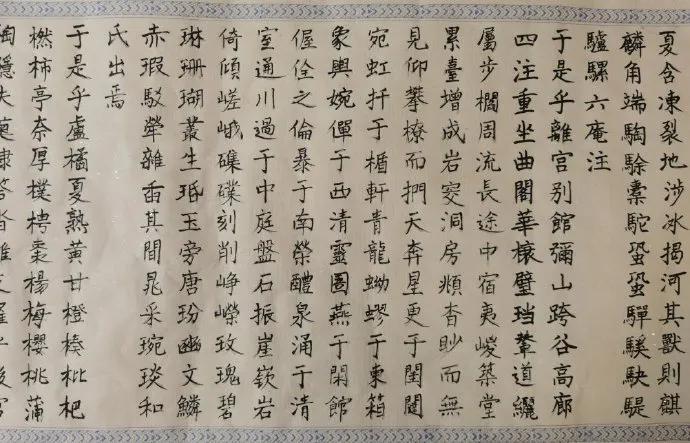 夏含凍裂地涉冰揭河其獸則麒
麟角端騊駼橐駝蛩蛩驒騱駃騠
驢騾六庵注
于是乎離宮别館彌山跨谷高廊
四注重坐曲閣華榱璧璫輦道纚
屬步櫩周流長途中宿夷嵕築堂
累臺增成岩窔洞房頫杳眇而無
見仰攀橑而捫天奔星更于閨闥
宛虹扦于楯軒青龍蚴蟉于東箱
象輿婉僤于西清靈圄燕于閑館
偓佺之倫暴于南榮醴泉涌于清
室通川過于中庭盤石振崖嶔岩
倚傾嵯峨磼礏刻削崢嶸玫瑰碧
琳珊瑚叢生珉玉旁唐玢豳文鱗
赤瑕駁犖雜臿其間晁采琬琰和
氏出焉
于是乎盧橘夏熟黃甘橙楱枇杷
橪柿亭奈厚樸梬棗楊梅櫻桃蒲